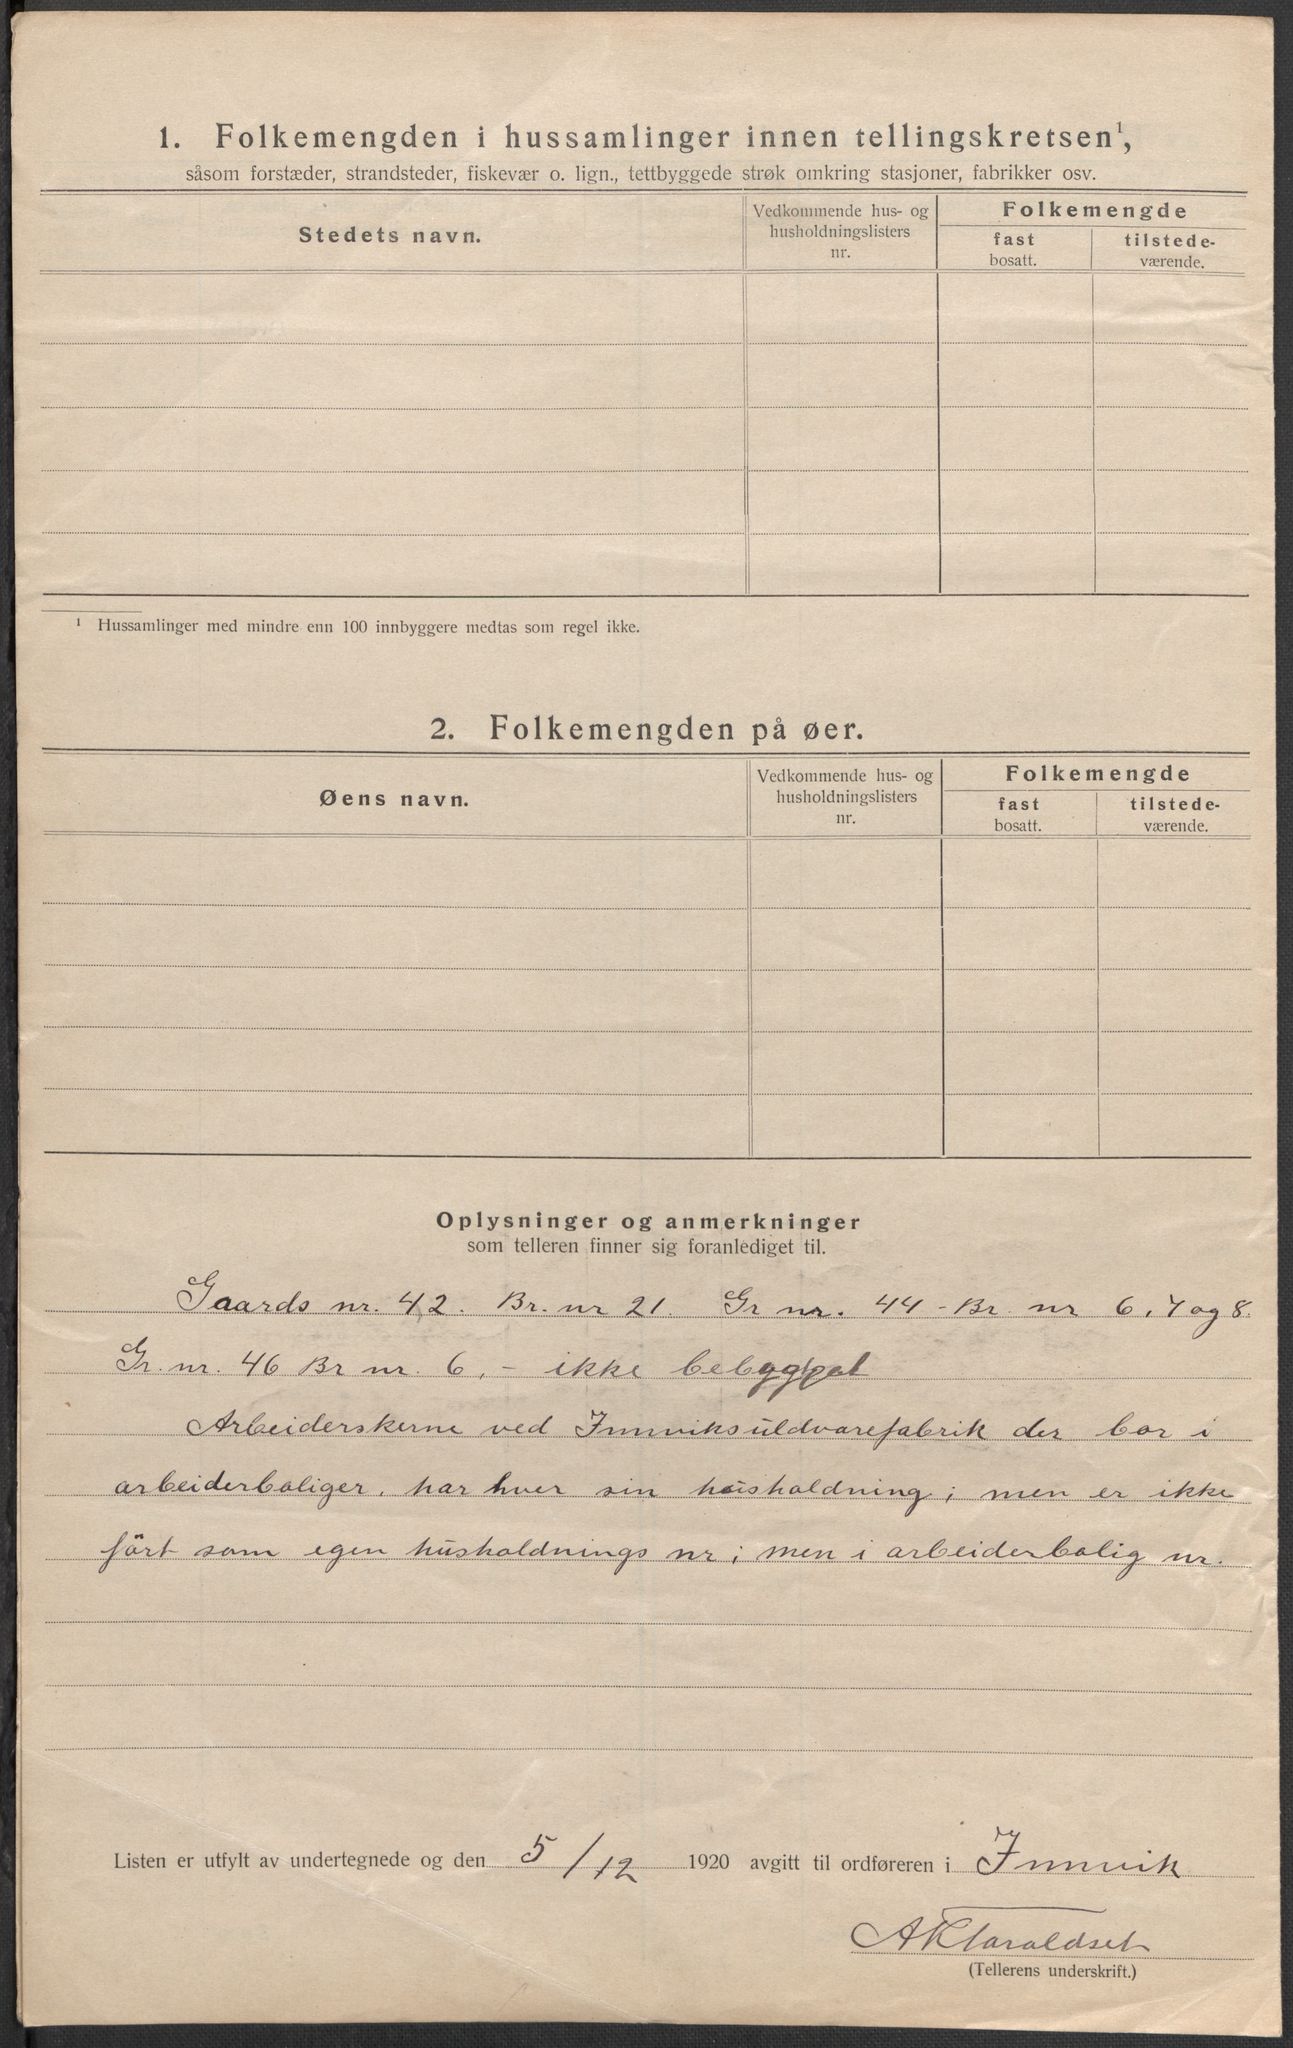 1. Folkemengden i hussamlinger innen tellingskretsen¹,
såsom forstæder, strandsteder, fiskevær o. lign., tettbyggede strøk omkring stasjoner, fabrikker osv.
Stedets navn.
Vedkommende hus- og
husholdningslisters
nr.
Folkemengde
fast
bosatt.
tilstede-
værende.
¹ Hussamlinger med mindre enn 100 innbyggere medtas som regel ikke.
2. Folkemengden på øer.
Øens navn.
Vedkommende hus- og
husholdningslisters
nr.
Folkemengde
fast
bosatt.
tilstede-
værende.
Oplysninger og anmerkninger
som telleren finner sig foranlediget til.
Gaards nr. 42. Br. nr 21. Gr nr. 44 - Br. nr 6, 7 og 8.
Gr. nr. 46 Br nr. 6, - ikke
Arbeiderskerne ved Innviksuldvarefabrik der bor i
arbeiderboliger, har hver sin husholdning; men er ikke
ført som egen husholdnings nr; men i arbeiderbolig nr.
Listen er utfylt av undertegnede og den 5/12 1920 avgitt til ordføreren i Innvik
AKTaraldset
(Tellerens underskrift.)